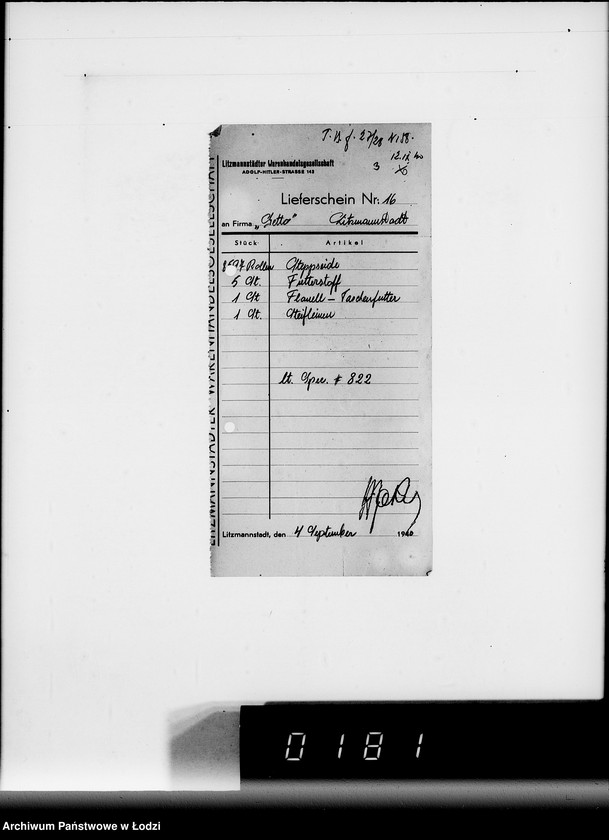 T. B. f. 27/28 N: 58.
12. IX. 40
3
Litzmannstädter Warenhandelsgesellschaft
ADOLF-HITLER-STRASSE 145
Lieferschein Nr. 16
an Firma „Getto" Litzmannstadt
Stück Artikel
Rollen Steppseide
5 St. Futterstoff
1 St. Flanell – Taschenfutter
1 St. Steifleinen
lt. Sper. # 822
Litzmannstadt, den 4 September 1940
LITZMANNSTÄDTER WARENHANDELSGESELLSCHAFT
0181
Archiwum Państwowe w Łodzi